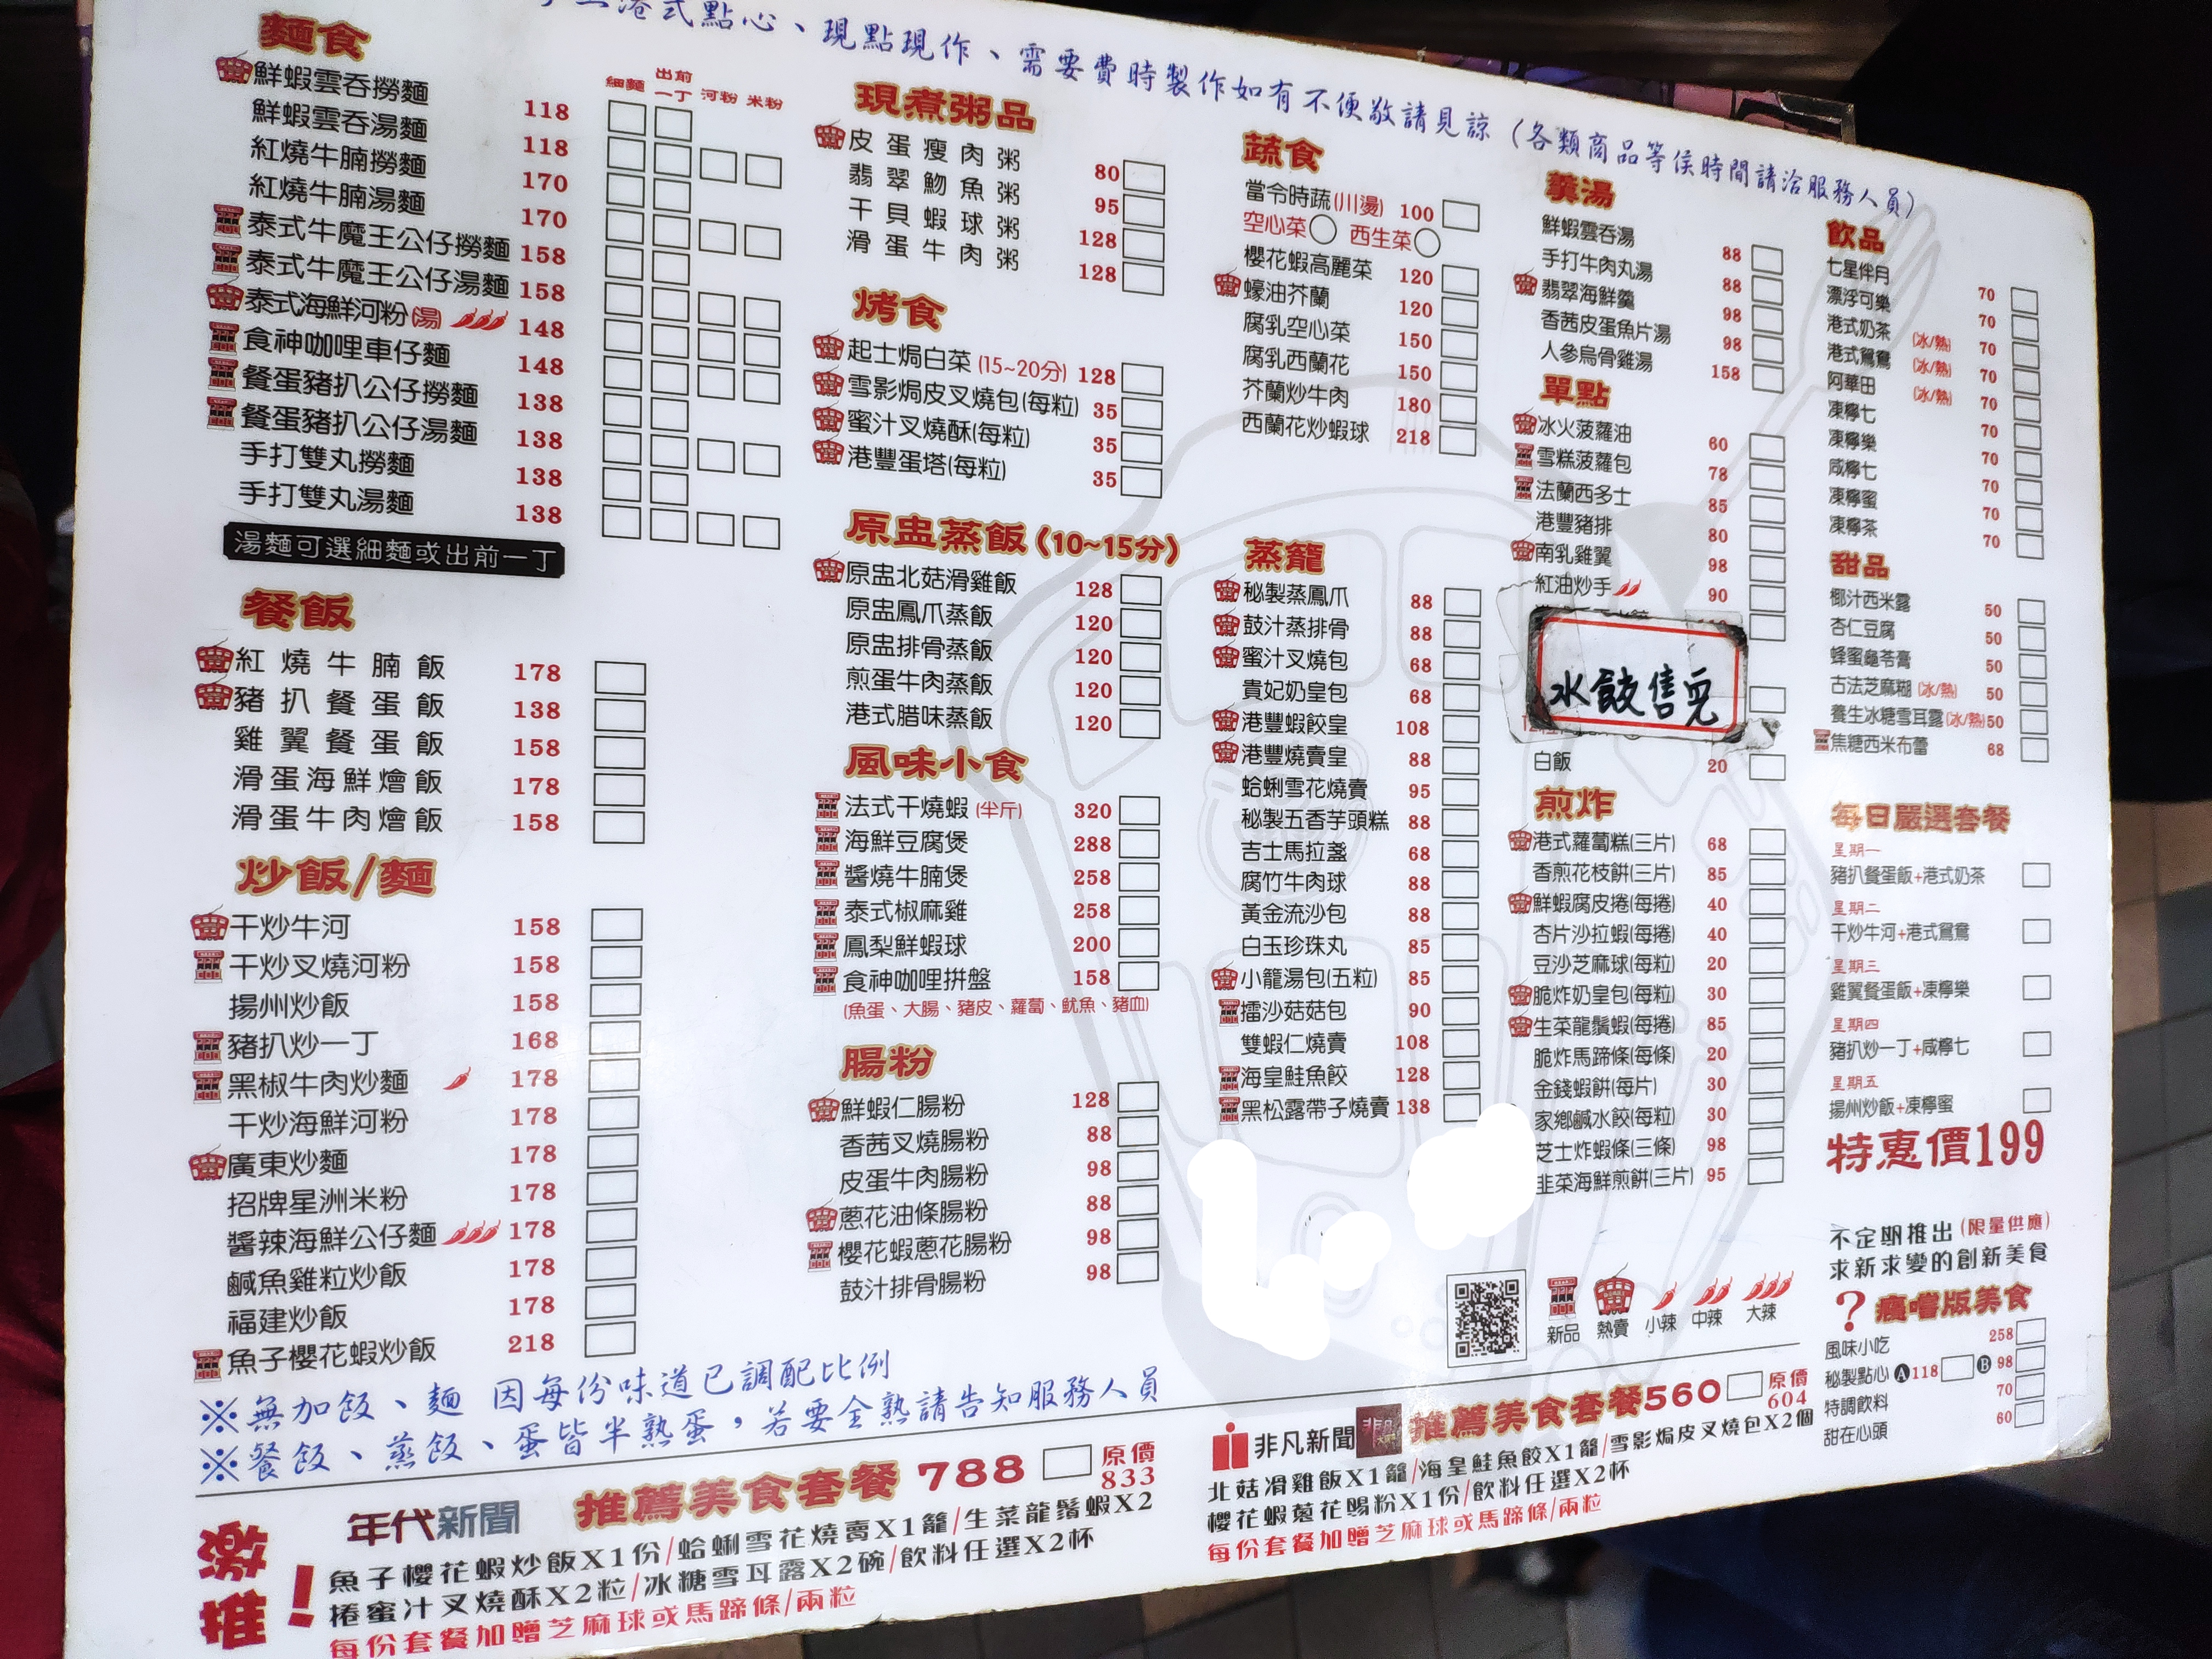 港式點心、現點現作、需要費時製作如有不便敬請見諒（各類商品等侯時間請洽服務人員）
麵食
細麵 出前一丁 河粉 米粉
鮮蝦雲吞撈麵 118
鮮蝦雲吞湯麵 118
紅燒牛腩撈麵 170
紅燒牛腩湯麵 170
泰式牛魔王公仔撈麵 158
泰式牛魔王公仔湯麵 158
泰式海鮮河粉(湯) 148
食神咖哩車仔麵 148
餐蛋豬扒公仔撈麵 138
餐蛋豬扒公仔湯麵 138
手打雙丸撈麵 138
手打雙丸湯麵 138
湯麵可選細麵或出前一丁
餐飯
紅燒牛腩飯 178
豬扒餐蛋飯 138
雞翼餐蛋飯 158
滑蛋海鮮燴飯 178
滑蛋牛肉燴飯 158
炒飯/麵
干炒牛河 158
干炒叉燒河粉 158
揚州炒飯 158
豬扒炒一丁 168
黑椒牛肉炒麵 178
干炒海鮮河粉 178
廣東炒麵 178
招牌星洲米粉 178
醬辣海鮮公仔麵 178
鹹魚雞粒炒飯 178
福建炒飯 178
魚子櫻花蝦炒飯 218
現煮粥品
皮蛋瘦肉粥 80
翡翠魩魚粥 95
干貝蝦球粥 128
滑蛋牛肉粥 128
烤食
起士焗白菜(15~20分) 128
雪影焗皮叉燒包(每粒) 35
蜜汁叉燒酥(每粒) 35
港豐蛋塔(每粒) 35
原盅蒸飯(10~15分)
原盅北菇滑雞飯 128
原盅鳳爪蒸飯 120
原盅排骨蒸飯 120
煎蛋牛肉蒸飯 120
港式腊味蒸飯 120
風味小食
法式干燒蝦(半斤) 320
海鮮豆腐煲 288
醬燒牛腩煲 258
泰式椒麻雞 258
鳳梨鮮蝦球 200
食神咖哩拼盤 158
(魚蛋、大腸、豬皮、蘿蔔、魷魚、豬血)
腸粉
鮮蝦仁腸粉 128
香茜叉燒腸粉 88
皮蛋牛肉腸粉 98
蔥花油條腸粉 88
櫻花蝦蔥花腸粉 98
鼓汁排骨腸粉 98
蔬食
當令時蔬(川燙) 100
空心菜 西生菜
櫻花蝦高麗菜 120
蠔油芥蘭 120
腐乳空心菜 150
腐乳西蘭花 150
芥蘭炒牛肉 180
西蘭花炒蝦球 218
蒸籠
秘製蒸鳳爪 88
鼓汁蒸排骨 88
蜜汁叉燒包 68
貴妃奶皇包 68
港豐蝦餃皇 108
港豐燒賣皇 88
蛤蜊雪花燒賣 95
秘製五香芋頭糕 88
吉士馬拉盞 68
腐竹牛肉球 88
黃金流沙包 88
白玉珍珠丸 85
小籠湯包(五粒) 85
擂沙菇菇包 90
雙蝦仁燒賣 108
海皇鮭魚餃 128
黑松露帶子燒賣 138
羹湯
鮮蝦雲吞湯 88
手打牛肉丸湯 88
翡翠海鮮羹 98
香茜皮蛋魚片湯 98
人參烏骨雞湯 158
單點
冰火菠蘿油 60
雪糕菠蘿包 78
法蘭西多士 85
港豐豬排 80
南乳雞翼 98
紅油炒手 90
水餃售完
白飯 20
煎炸
港式蘿蔔糕(三片) 68
香煎花枝餅(三片) 85
鮮蝦腐皮捲(每捲) 40
杏片沙拉蝦(每捲) 40
豆沙芝麻球(每粒) 20
脆炸奶皇包(每粒) 30
生菜龍鬚蝦(每捲) 85
脆炸馬蹄條(每條) 20
金錢蝦餅(每片) 30
家鄉鹹水餃(每粒) 30
芝士炸蝦條(三條) 98
韭菜海鮮煎餅(三片) 95
新品 熱賣 小辣 中辣 大辣
飲品
七星伴月 70
漂浮可樂 70
港式奶茶(冰/熱) 70
港式鴛鴦(冰/熱) 70
阿華田(冰/熱) 70
凍檸七 70
凍檸樂 70
咸檸七 70
凍檸蜜 70
凍檸茶 70
甜品
椰汁西米露 50
杏仁豆腐 50
蜂蜜龜苓膏 50
古法芝麻糊(冰/熱) 50
養生冰糖雪耳露(冰/熱) 50
焦糖西米布蕾 68
每日嚴選套餐
星期一
豬扒餐蛋飯+港式奶茶
星期二
干炒牛河+港式鴛鴦
星期三
雞翼餐蛋飯+凍檸樂
星期四
豬扒炒一丁+咸檸七
星期五
揚州炒飯+凍檸蜜
特惠價199
不定期推出(限量供應)
求新求變的創新美食
?瘋嚐版美食
風味小吃 258
秘製點心 A 118 B 98
特調飲料 70
甜在心頭 60
※無加飯、麵 因每份味道已調配比例
※餐飯、蒸飯、蛋皆半熟蛋，若要全熟請告知服務人員
激推!
年代新聞 推薦美食套餐 788 原價 833
魚子櫻花蝦炒飯X1份/蛤蜊雪花燒賣X1籠/生菜龍鬚蝦X2
捲蜜汁叉燒酥X2粒/冰糖雪耳露X2碗/飲料任選X2杯
每份套餐加贈芝麻球或馬蹄條/兩粒
非凡新聞 推薦美食套餐560 原價 604
北菇滑雞飯X1籠/海皇鮭魚餃X1籠/雪影焗皮叉燒包X2個
櫻花蝦蔥花腸粉X1份/飲料任選X2杯
每份套餐加贈芝麻球或馬蹄條/兩粒